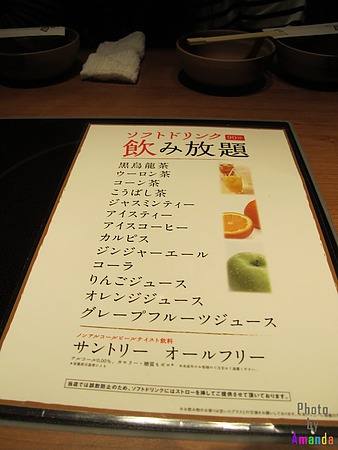 ソフトドリンク 90分
飲み放題
黒烏龍茶
ウーロン茶
コーン茶
こうばし茶
ジャスミンティー
アイスティー
アイスコーヒー
カルピス
ジンジャーエール
コーラ
りんごジュース
オレンジジュース
グレープフルーツジュース
ノンアルコールビールテイスト飲料
サントリー オールフリー
アルコール0.00%、カロリー・糖質もゼロ
当店では誤飲防止のため、ソフトドリンクにはストローを挿してご提供させて頂いております。
Photo
by
Amanda